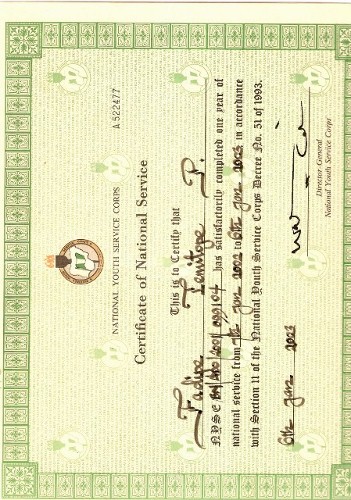 A 522477
NATIONAL YOUTH SERVICE CORPS
Certificate of National Service
This is to Certify that
Fadipe Temitope P.
has satisfactorily completed one year of
national service from 7th Jan 2002 to 6th Jan 2003 in accordance
with Section 11 of the National Youth Service Corps Decree No. 51 of 1993.
6th Jan 2003
Director-General
National Youth Service Corps